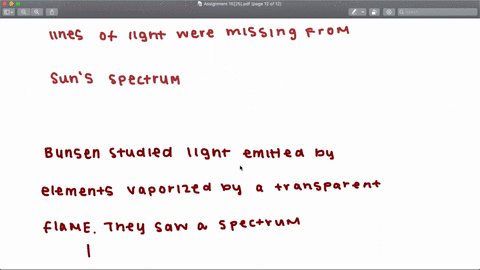 Assignment 15(35).pdf (page 12 of 12)
Search
lines of light were missing from
sun's spectrum
Bunsen studied light emitted by
elements vaporized by a transparent
flame. They saw a spectrum